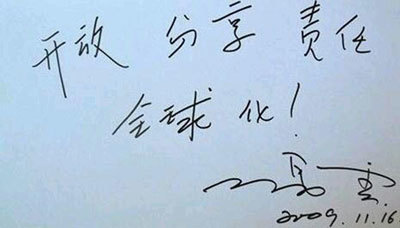 开放 分享 责任
全球化!
马云
2009.11.16